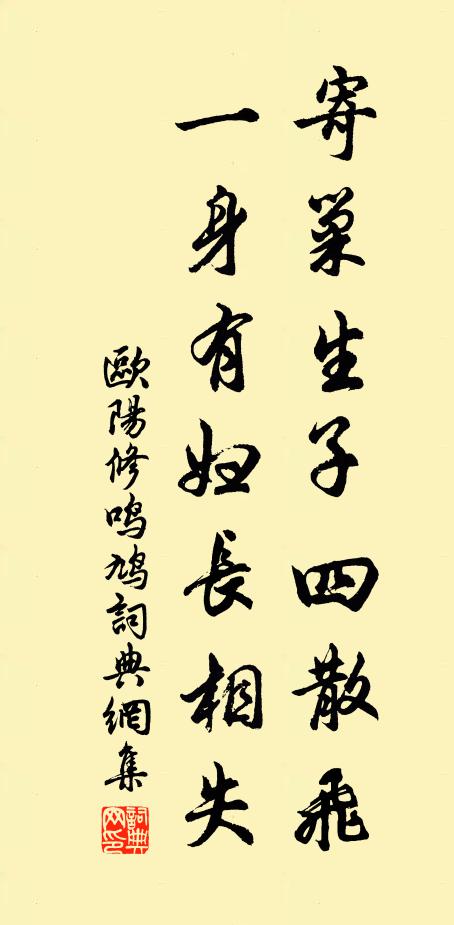 寄巢生子四散飛
一身有妇長相失
歐陽修鸣鳩詞典網集
詞典网印